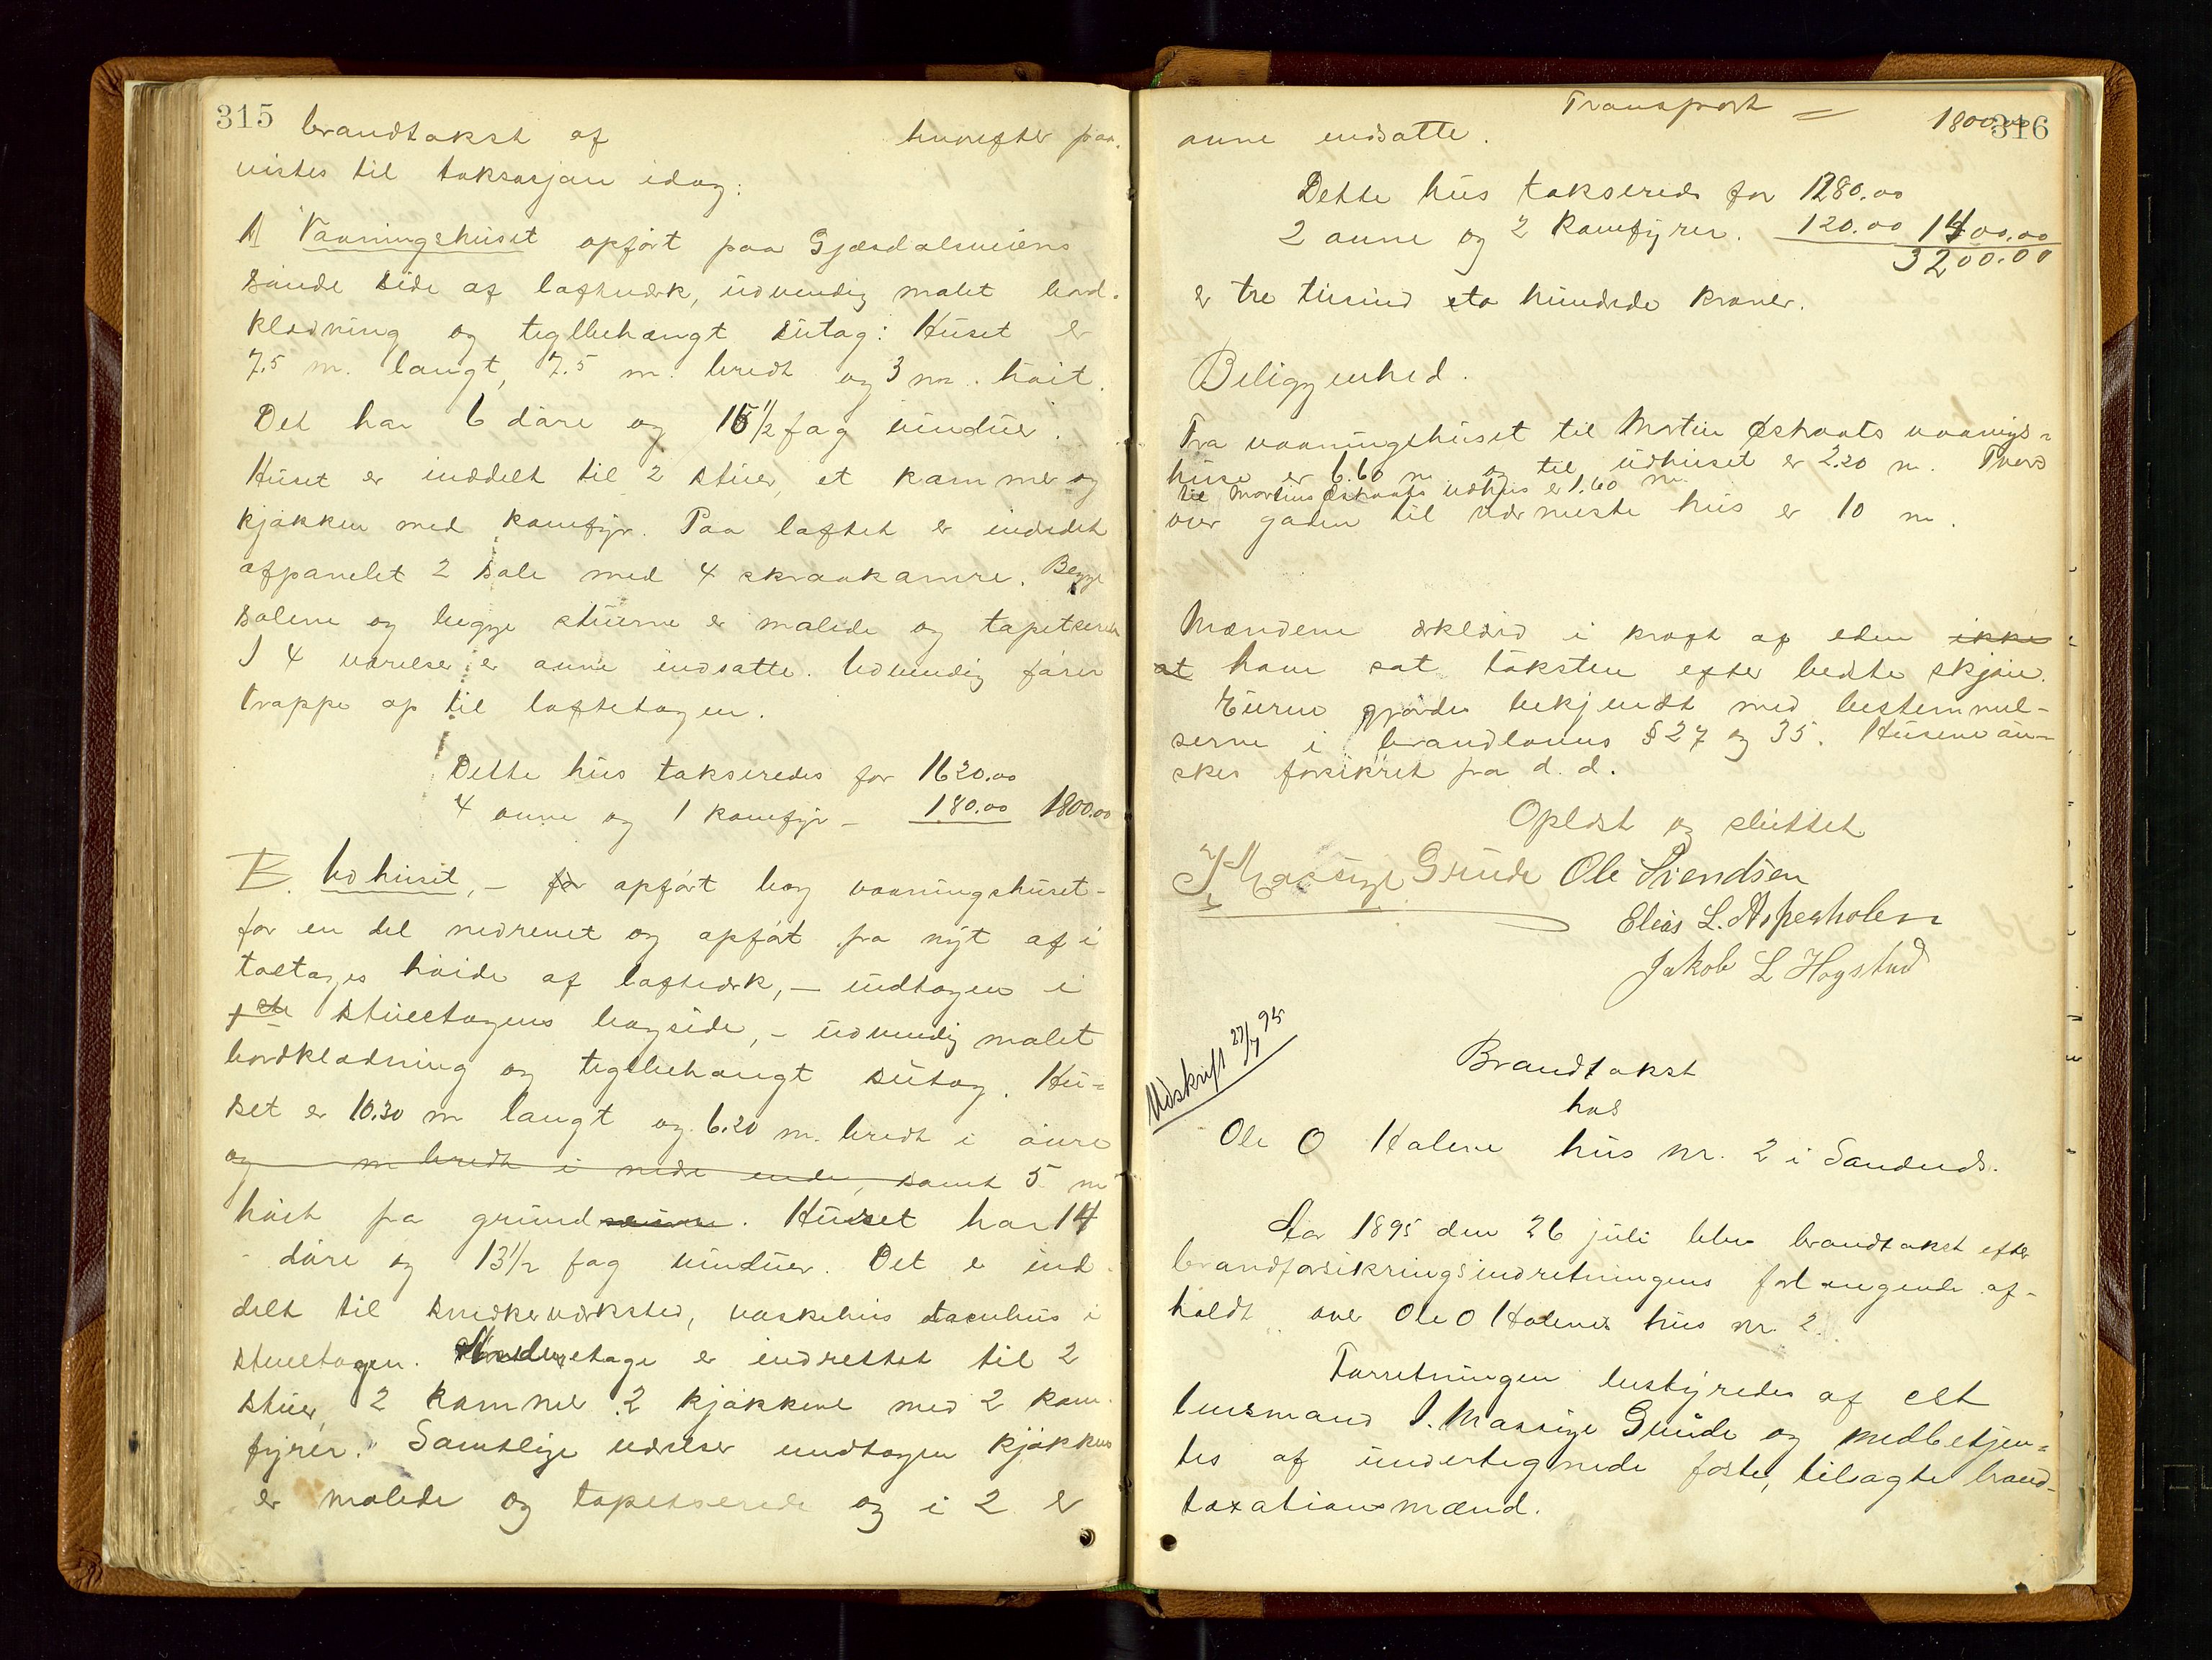 315
brandtakst af hvorefter paa-
vistes til taksasjon idag:
A Vaaningshuset opført paa Gjæsdalsveiens
søndre side af loftværk, udvendig malet bord-
klædning og teglbehængt sutag: Huset er
7.5 m. langt, 7.5 m. bredt og 3 m. høit.
Det har 6 døre og 15 1/2 fag vinduer.
Huset er inddelt til 2 stuer, et kammer og
kjøkken med komfyr. Paa loftet er inddelt
afpanelet 2 sale med 4 skraakamre. Begge
salene og begge stuerne er malede og tapetserede
I 4 værelser er ovne indsatte. Udvendig fører
trappe op til loftetagen.
Dette hus takseredes for 1620.00
4 ovne og 1 komfyr — 180.00 1800.00
B. Udhuset, — før opført bag vaaningshuset -
for en del nedrevet og opført fra nyt af i
toetages høide af loftværk, — undtagen i
1ste stueetagens bagside, — udvendig malet
bordklædning og teglbehængt sutag. Hu-
set er 10.30 m langt og 6.20 m. bredt i øvre
og m bredt i nedre ende, samt 5 m
høit fra grund. Huset har 14
døre og 13 1/2 fag vinduer. Det er ind-
delt til snedkerværksted, vaskehus i
stueetagen. Anden etage er indrettet til 2
stuer, 2 kammer 2 kjøkkene med 2 kom-
fyrer. Samtlige værelser undtagen kjøkken
er malede og tapetserede og i 2 er
316
Transport = 1800.00
ovne indsatte.
Dette hus takseredes for 1280.00
2 ovne og 2 komfyrer. 120.00 1400.00
3200.00
er tre tusind to hundrede kroner.
Beliggenhed.
Fra vaaningshuset til Martin Østraats vaanings-
huse er 6.60 m og til udhuset er 2.20 m. Tvers
til Martin Østraats udhus er 1.60 m.
over gaden til nærmeste hus er 10 m.
Mændene erklærd i kraft af eden ikke
at have sat taksten efter bedste skjøn.
Eieren gjordes bekjendt med bestemmel-
serne i brandlovens § 27 og 35. Husene øn-
skes forsikret fra d. d.
Oplæst og sluttet
I Massige Grude Ole Svendsen
Elias L. Aspesholen
Jakob L Hogstad
Udskrift 27/7 95
Brandtakst
hos
Ole O Halene hus nr. 2 i Sandnes.
Aar 1895 den 26 juli blev brandtakst efter
brandforsikringsindretningens forlangende af-
holdt over Ole O Halenes hus nr. 2.
Forretningen bestyredes af cst
lensmand I. Massige Grude og medbetjen-
tes af undertegnede faste, tilsagte brand-
taxationsmænd.